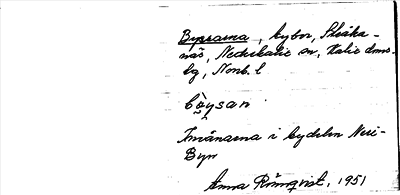 Byssarna, bybor, Stråka-
näs, Nederkalix sn, Kalix dms-
lg, Norrb. l
Invånarna i bydelen Neri-
Byn
Anna Rönnqvist, 1951